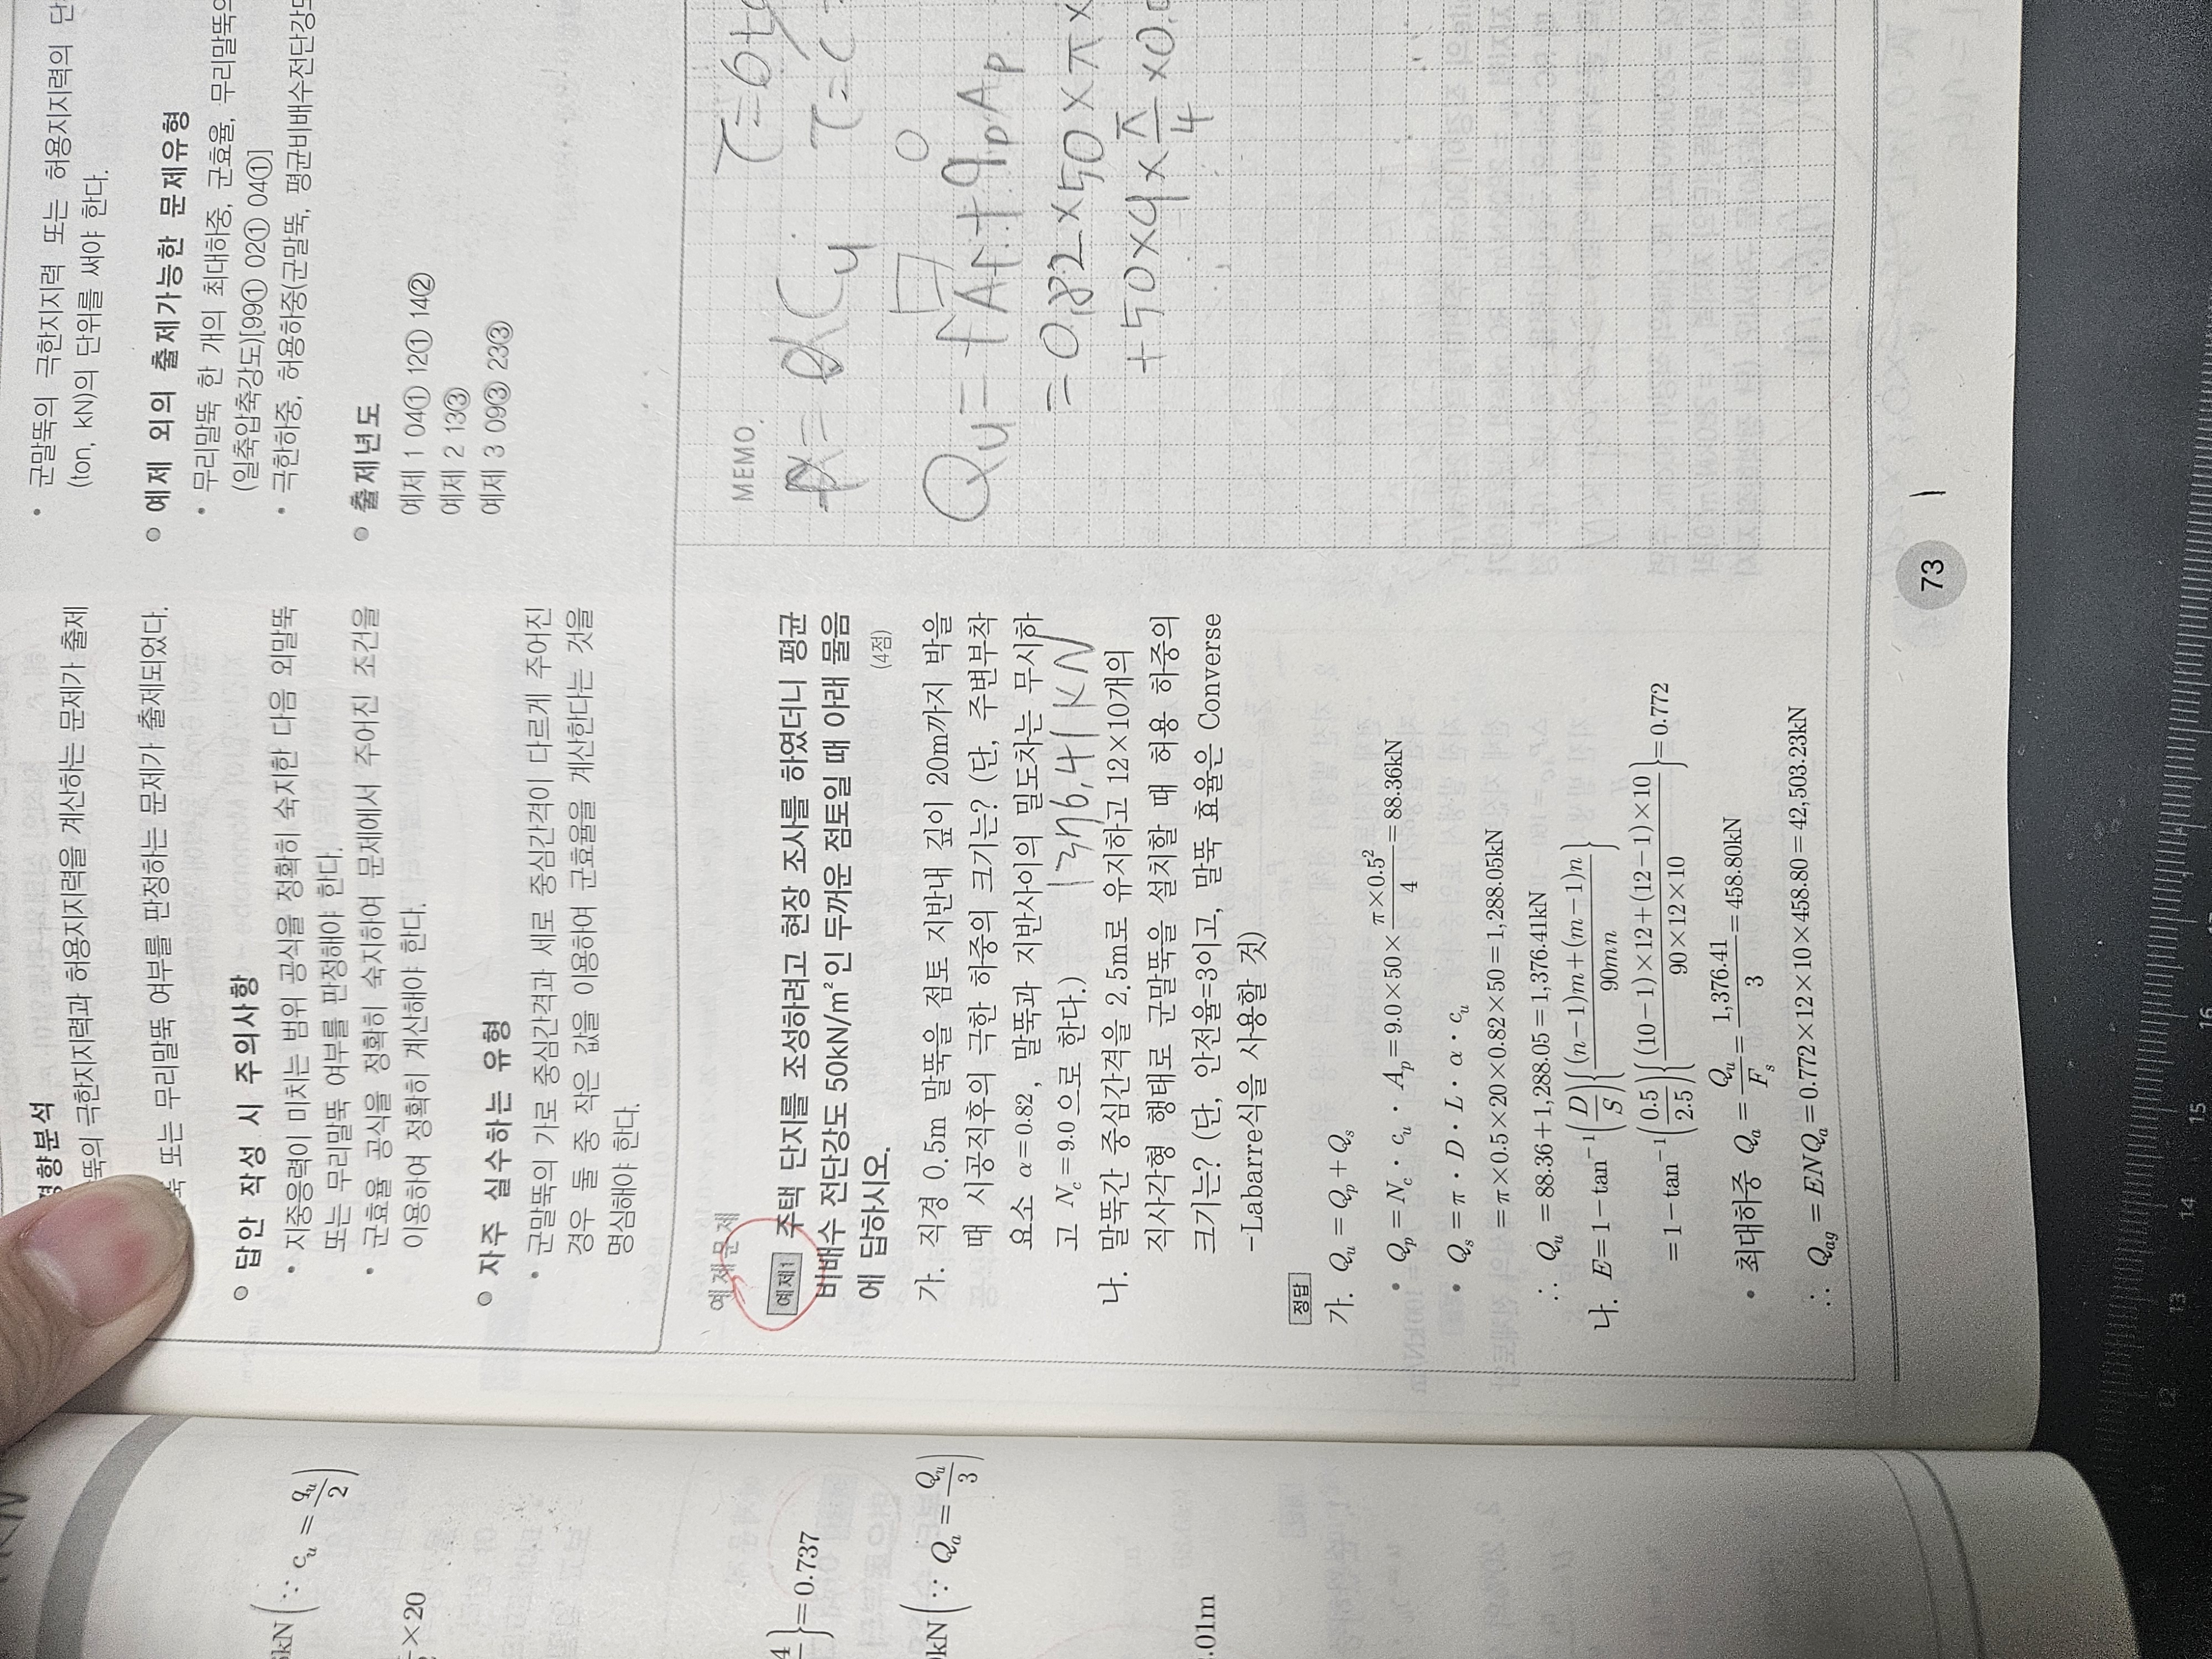 군말뚝의 극한지지력 또는 허용지지력의 단
(ton, kN)의 단위를 써야 한다.
예제 외의 출제가능한 문제유형
• 무리말뚝 한 개의 최대하중, 군효율, 무리말뚝의
(일축압축강도)[99① 02① 04①]
• 극한하중, 허용하중(군말뚝, 평균비배수전단강도
출제년도
예제 1 04① 12① 14②
예제 2 13③
예제 3 09③ 23③
경향분석
뚝의 극한지지력과 허용지지력을 계산하는 문제가 출제
또는 무리말뚝 여부를 판정하는 문제가 출제되었다.
답안 작성 시 주의사항
• 지중응력이 미치는 범위 공식을 정확히 숙지한 다음 외말뚝
또는 무리말뚝 여부를 판정해야 한다.
• 군효율 공식을 정확히 숙지하여 문제에서 주어진 조건을
이용하여 정확히 계산해야 한다.
자주 실수하는 유형
• 군말뚝의 가로 중심간격과 세로 중심간격이 다르게 주어진
경우 둘 중 작은 값을 이용하여 군효율을 계산한다는 것을
명심해야 한다.
예제문제
예제1 주택 단지를 조성하려고 현장 조사를 하였더니 평균
비배수 전단강도 50kN/m²인 두꺼운 점토일 때 아래 물음
에 답하시오. (4점)
가. 직경 0.5m 말뚝을 점토 지반내 깊이 20m까지 박을
때 시공직후의 극한 하중의 크기는? (단, 주변부착
요소 α=0.82, 말뚝과 지반사이의 밀도차는 무시하
고 N_c=9.0으로 한다.)
1376.41 kN
나. 말뚝간 중심간격을 2.5m로 유지하고 12×10개의
직사각형 형태로 군말뚝을 설치할 때 허용 하중의
크기는? (단, 안전율=3이고, 말뚝 효율은 Converse
-Labarre식을 사용할 것)
정답
가. Q_u = Q_p + Q_s
• Q_p = N_c · c_u · A_p = 9.0×50× π×0.5²/4 = 88.36kN
• Q_s = π · D · L · α · c_u
= π×0.5×20×0.82×50 = 1,288.05kN
∴ Q_u = 88.36+1,288.05 = 1,376.41kN
나. E = 1 − tan⁻¹(D/S){(n−1)m+(m−1)n / 90mn}
= 1 − tan⁻¹(0.5/2.5){(10−1)×12+(12−1)×10 / 90×12×10} = 0.772
• 최대하중 Q_a = Q_u/F_s = 1,376.41/3 = 458.80kN
∴ Q_ag = ENQ_a = 0.772×12×10×458.80 = 42,503.23kN
MEMO
αC_u
τ=c
Q_u = fA_f + q_p A_p
= 0.82×50×π×
+50×9×π/4×0.
73
kN(∵ c_u = q_u/2)
×20
}=0.737
kN(∵ Q_a = Q_u/3)
.01m